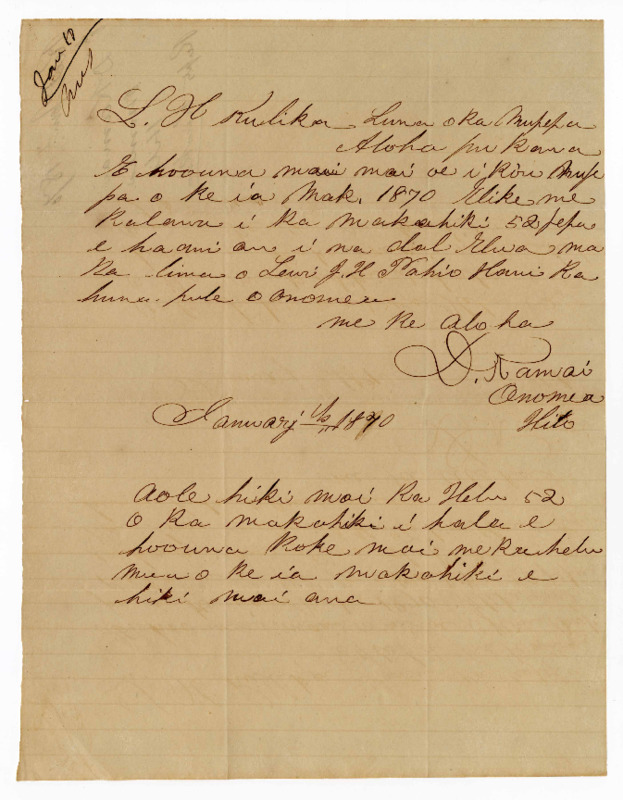 Jan 10
Ans
L. H Kulika Luna o ka Nupepa
Aloha pu kaua
E hoouna mai mai oe i kou Nupe
pa o ke ia Mak. 1870 Elike me
Kalawa i ka makahiki 52 pepa
e haawi au i na dal Elua ma
ka lima o Lewi J. H Pahio Haui Ka
huna pule o Onomea
me ke aloha
D. Kamai
Onomea
Hilo
January 1870
Aole hiki mai ka Helu 52
O ka makahiki i hala e
hoouna koke mai me ka helu
mua o ke ia makahiki e
hiki mai ana